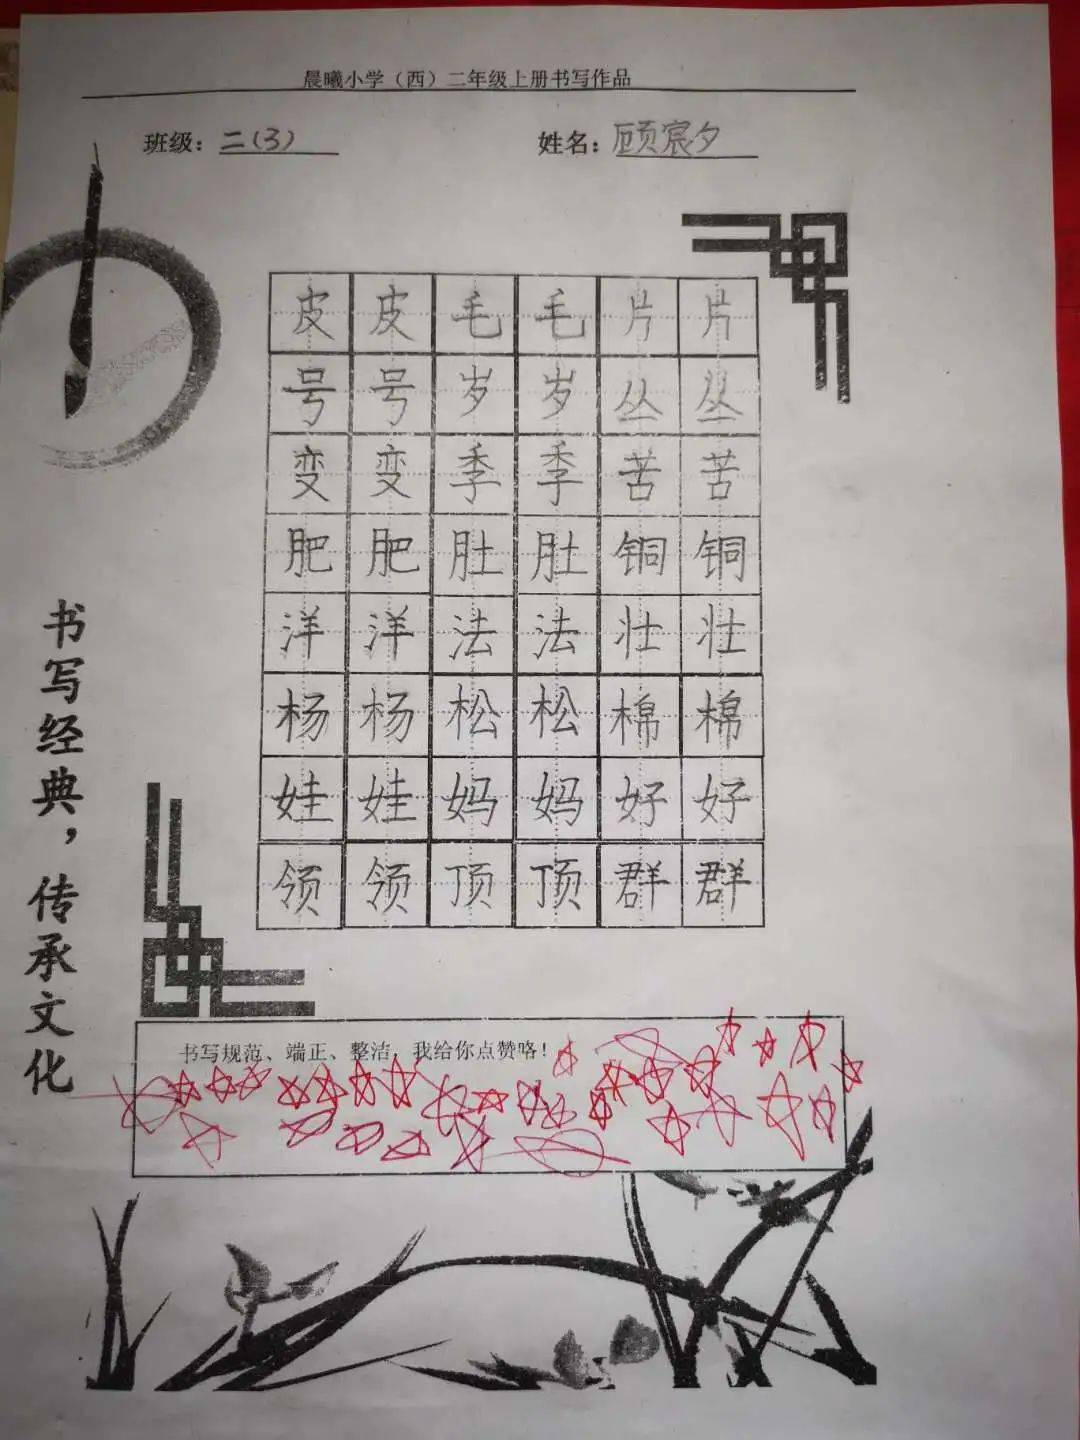 晨曦小学（西）二年级上册书写作品
班级：二(3) 姓名：顾宸夕
皮皮毛毛片片
号号岁岁丛丛
变变季季苦苦
肥肥肚肚铜铜
洋洋法法壮壮
杨杨松松棉棉
娃娃妈妈好好
领领顶顶群群
书写经典，传承文化
书写规范、端正、整洁，我给你点赞咯！